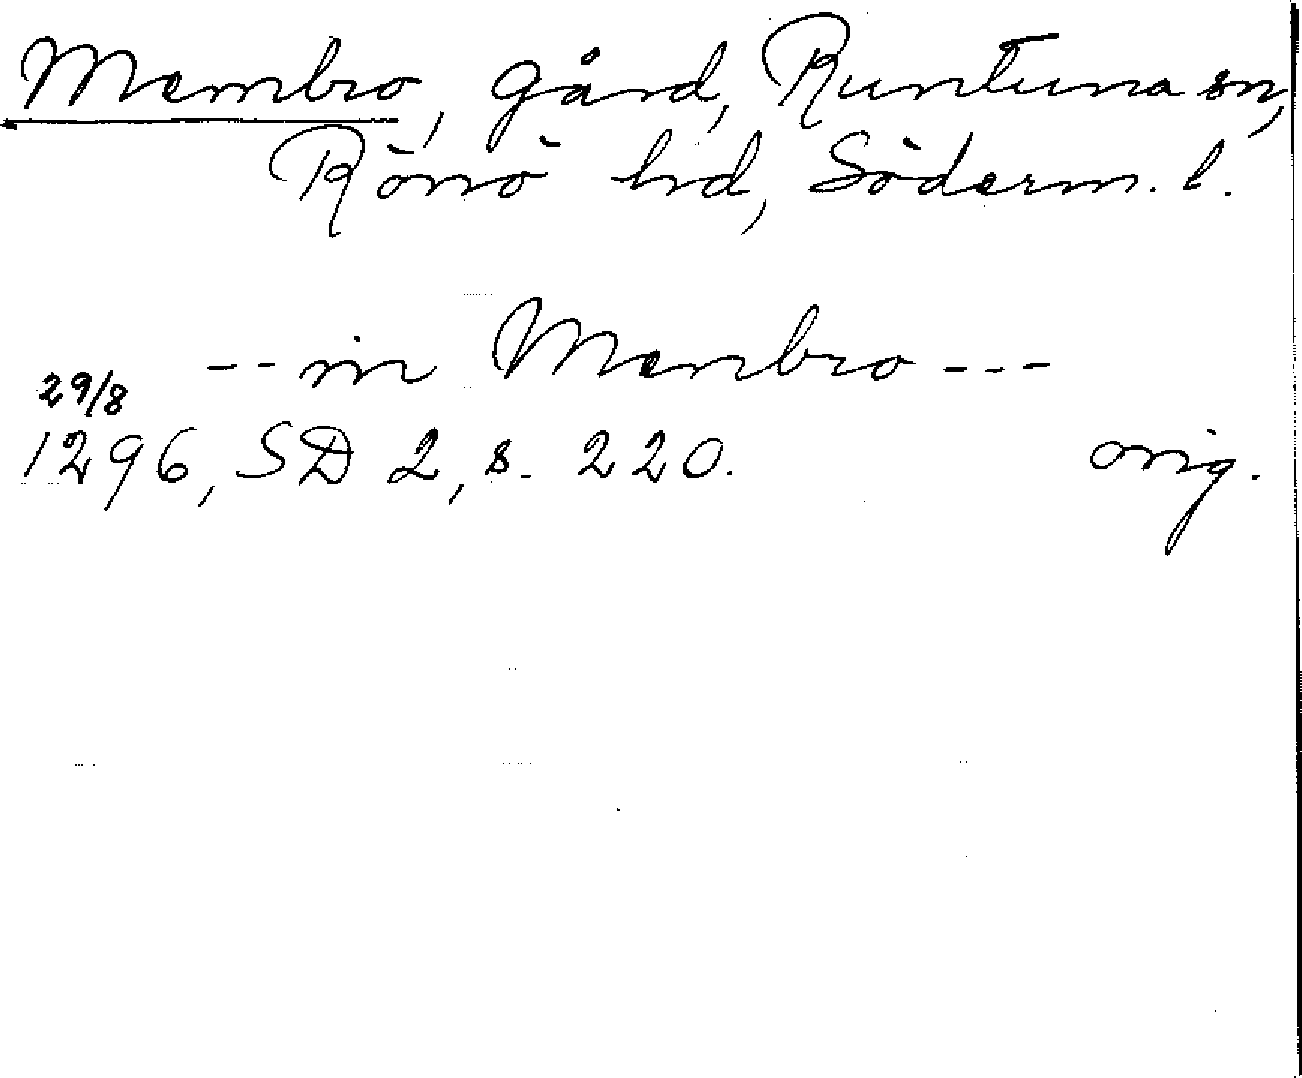 Membro, gård, Runtuna sn,
Rönö hd, Söderm. l.
-- in Menbro ---
29/8
1296, SD 2, s. 220. orig.